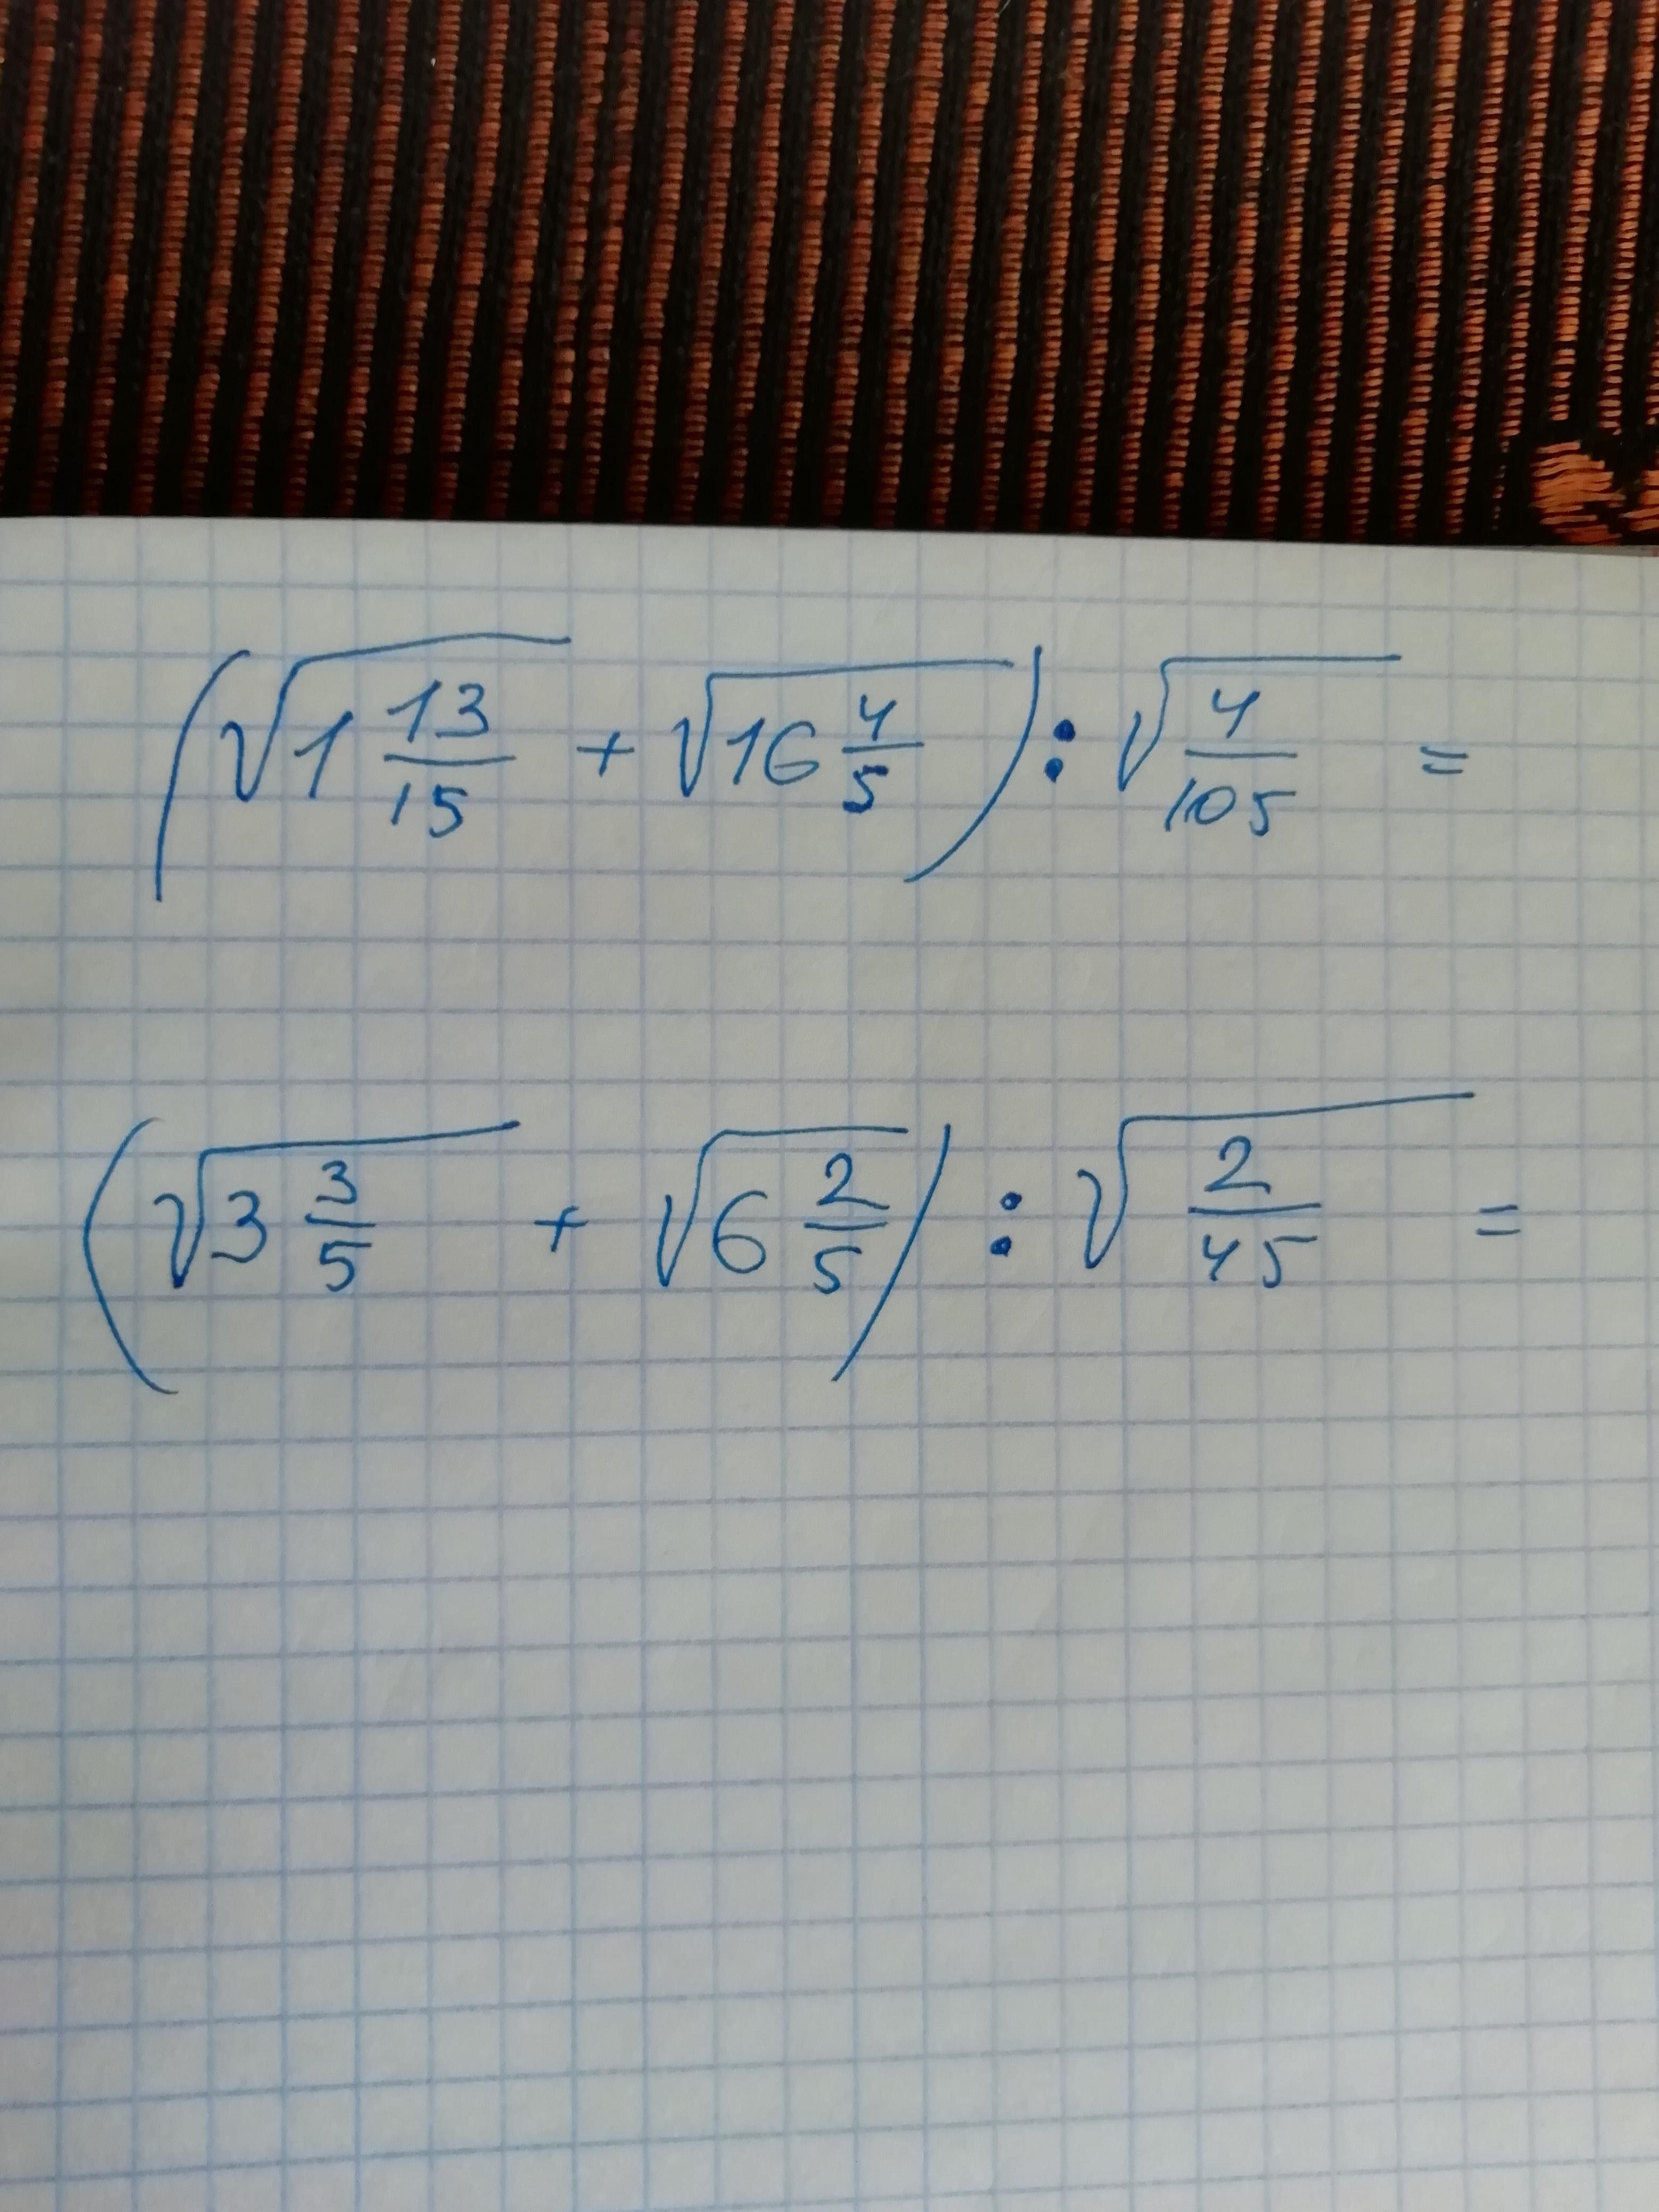 (√1 13/15 + √16 4/5) : √4/105 =
(√3 3/5 + √6 2/5) : √2/45 =